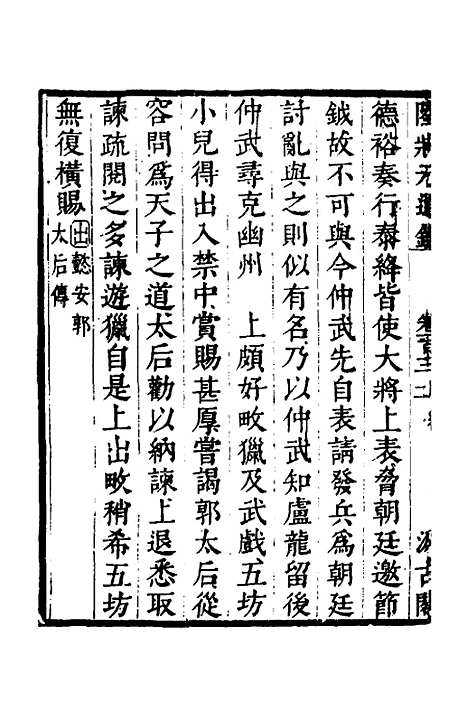 德裕奏行泰絳皆使大將上表脅朝廷邀節
鉞故不可與今仲武先自表請發兵爲朝廷
討亂與之則似有名乃以仲武知盧龍留後
仲武尋克幽州　上頗好畋獵及武戲五坊
小兒得出入禁中賞賜甚厚嘗謁郭太后從
容問爲天子之道太后勸以納諫上退悉取
諫疏閱之多諫遊獵自是上出畋稍希五坊
無復橫賜
出懿安郭
太后傳